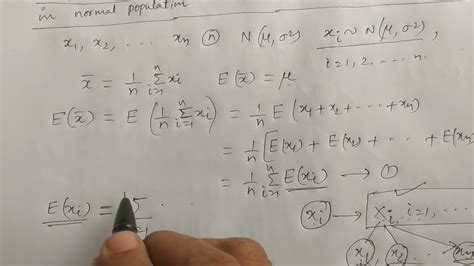 in normal population
x₁, x₂, ... xₙ (n) N(μ, σ²) xᵢ ~ N(μ, σ²),
i=1, 2. .... n.
x̄ = 1/n Σᵢ₌₁ⁿ xᵢ E(x̄) = μ
E(x̄) = E (1/n Σᵢ₌₁ⁿ xᵢ) = 1/n E (x₁ + x₂ + ... + xₙ)
= 1/n [E(x₁) + E(x₂) + ... + E(xₙ)
= 1/n Σᵢ₌₁ⁿ E(xᵢ) → ①
E(xᵢ) = Σ
xᵢ → Xᵢ, i=1, ...
x₁ x₂ ...